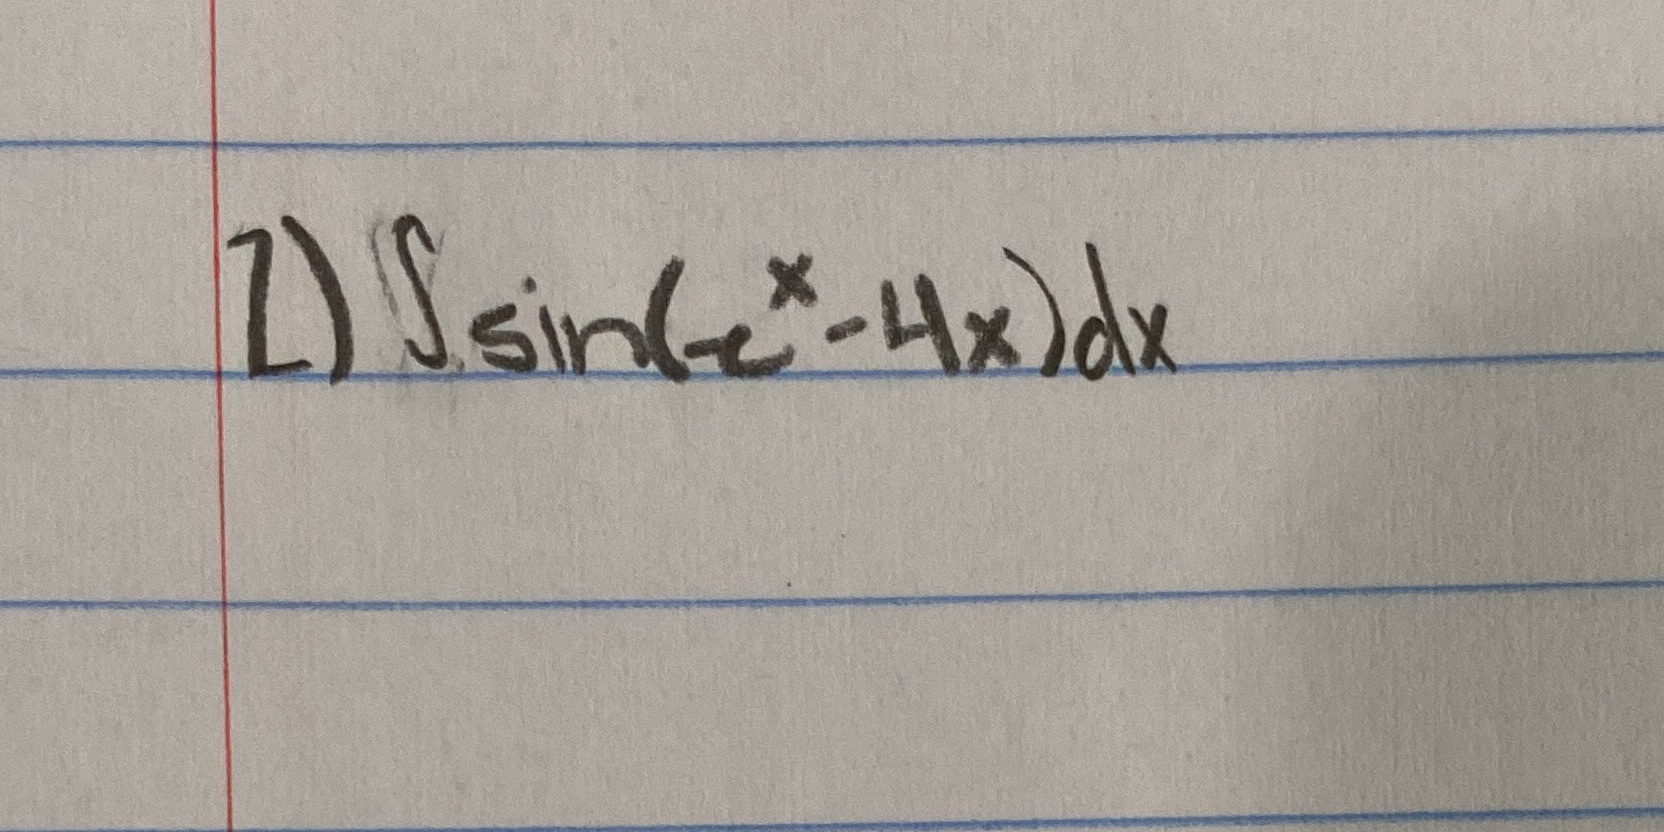 2) ∫ sin(-e^x - 4x)dx